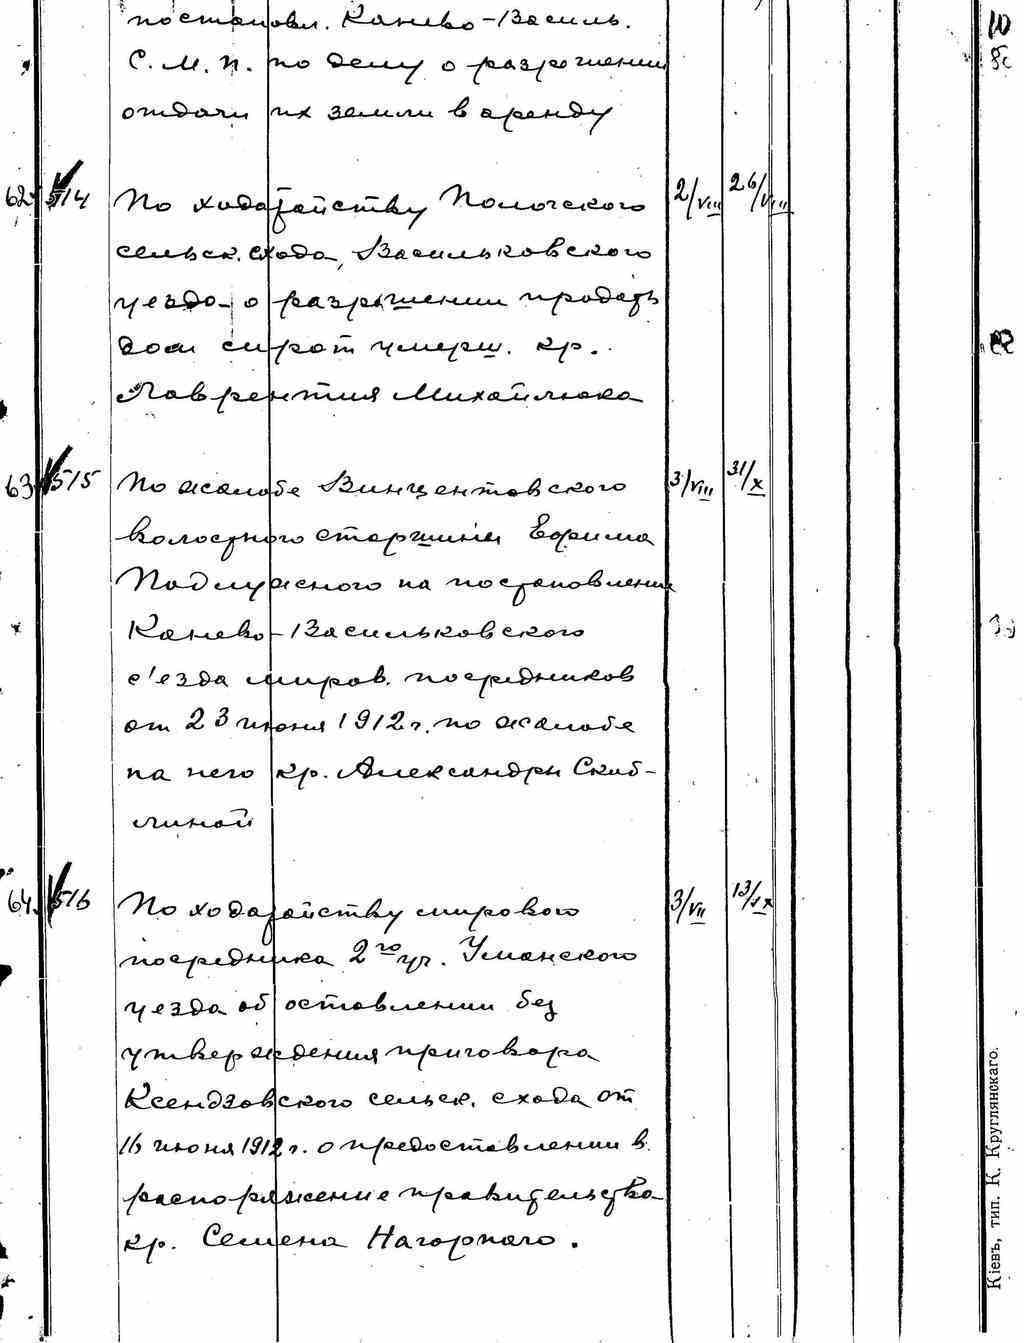 постановл. Канево-Василь.
С. М. П. по делу о разрешении
отдачи их земли в аренду
62 514 По ходатайству Пологского 2/VIII 26/VIII
сельск. схода, Васильковского
уезда о разрешении продать
дом сирот умерш. кр.
Лаврентия Михайлюка
63 515 По жалобе Винцентовского 3/VIII 31/X
волостного старшины Ефрима
Подлужного на постановление
Канево-Васильковского
с'езда миров. посредников
от 23 июня 1912 г. по жалобе
на него кр. Александры Скиб-
линой
64. 516 По ходатайству мирового 3/VII 13/IX
посредника 2го уч. Уманского
уезда об оставлении без
утверждения приговора
Ксендзовского сельск. схода от
16 июня 1912 г. о предоставлении в
распоряжение правительства
кр. Семена Нагорного.
Кіевъ, тип. К. Круглянскаго.